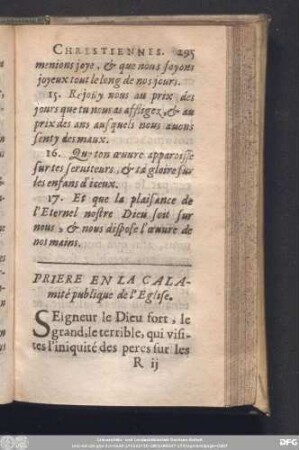 CHRESTIENNES. 295
menions joye, & que nous soyons
joyeux tout le long de nos jours.
15. Rejouy nous au prix des
jours que tu nous as affligez, & au
prix des ans ausquels nous auons
senty des maux.
16. Que ton œuure apparoisse
sur tes seruiteurs, & ta gloire sur
les enfans d'iceux.
17. Et que la plaisance de
l'Eternel nostre Dieu soit sur
nous, & nous dispose l'œuure de
nos mains.
PRIERE EN LA CALA-
mité publique de l'Eglise.
SEigneur le Dieu fort, le
grand, le terrible, qui visi-
tes l'iniquité des peres sur les
R ij
DFG